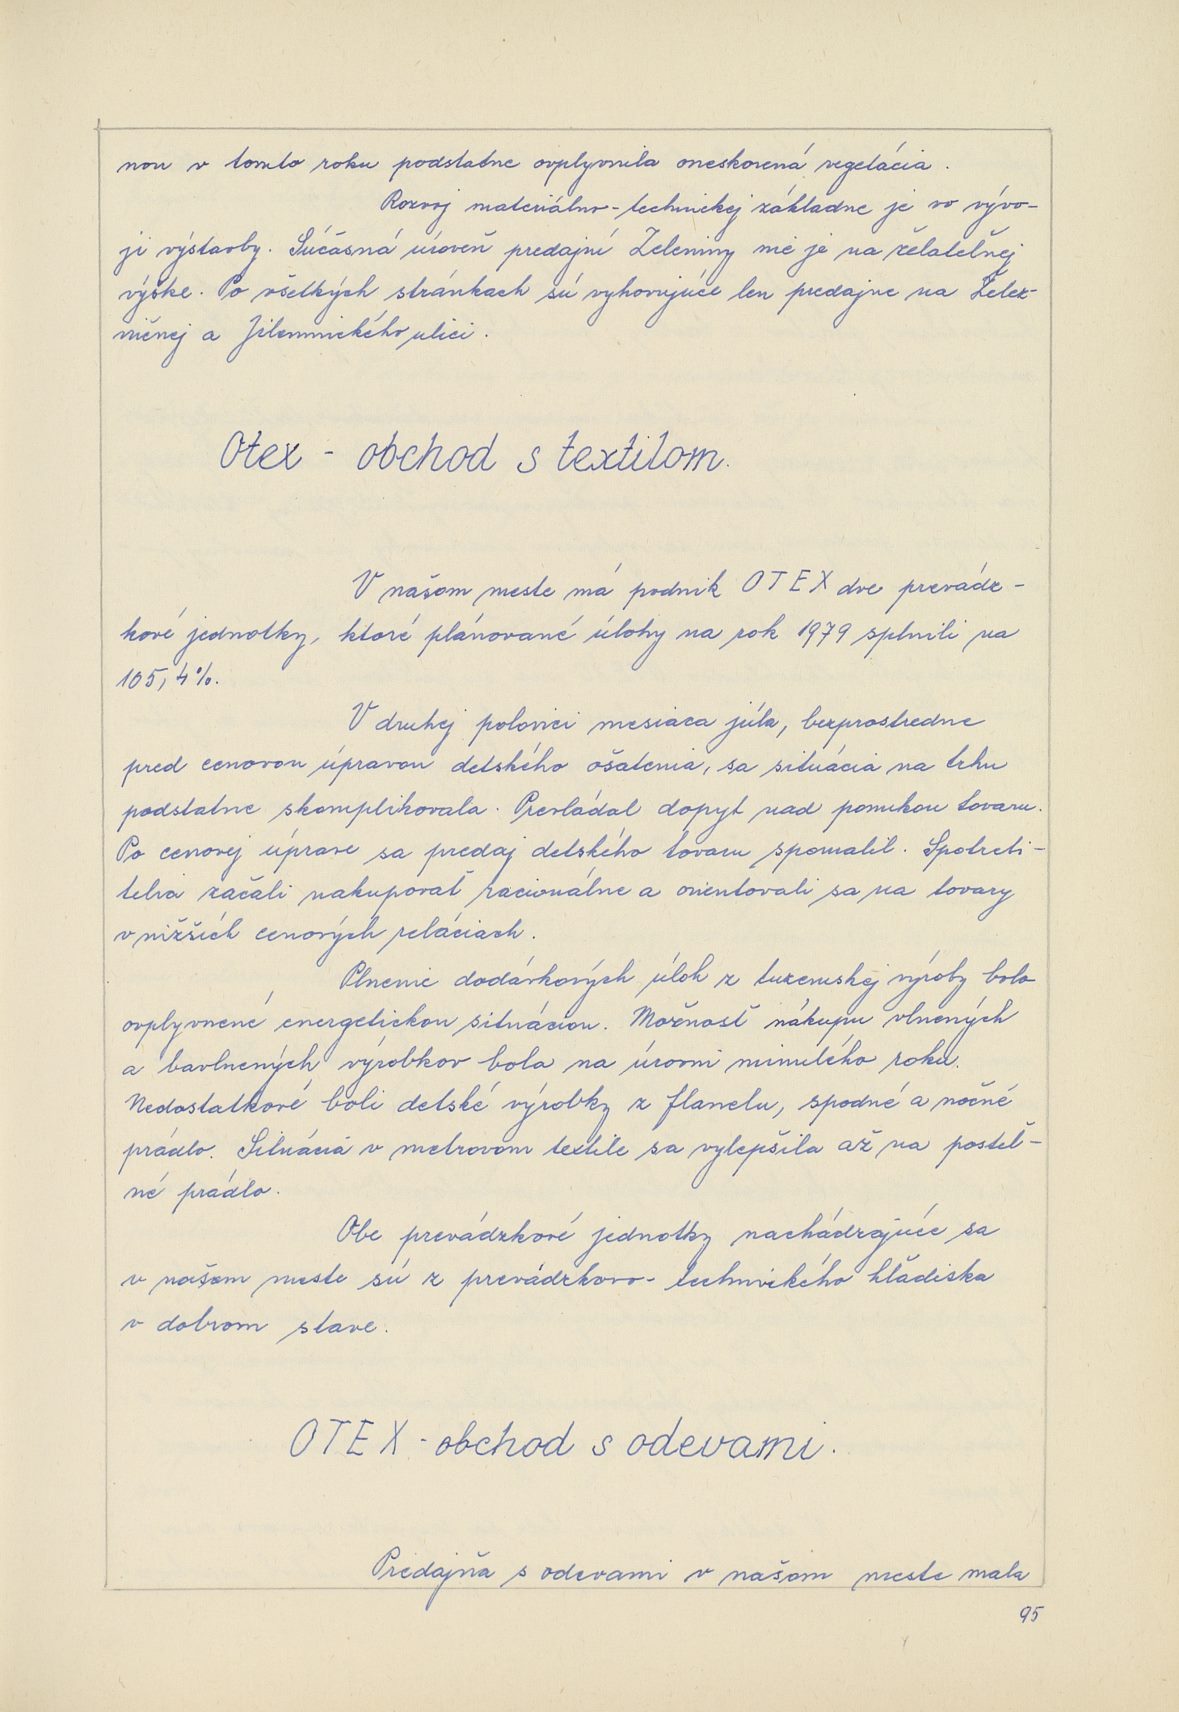 nou v tomto roku podstatne ovplyvnila oneskorená vegetácia.
Rozvoj materiálno-technickej základne je vo vývo-
ji výstavby. Súčasná úroveň predajní Zeleniny nie je na želateľnej
výške. Po všetkých stránkach sú vyhovujúce len predajne na Želez-
ničnej a Jilemnického ulici.
Otex - obchod s textilom.
V našom meste má podnik OTEX dve prevádz-
kové jednotky, ktoré plánované úlohy na rok 1979 splnili na
105,4%.
V druhej polovici mesiaca júla, bezprostredne
pred cenovou úpravou detského ošatenia, sa situácia na trhu
podstatne skomplikovala. Prevládal dopyt nad ponukou tovaru.
Po cenovej úprave sa predaj detského tovaru spomalil. Spotrebi-
telia začali nakupovať racionálne a orientovali sa na tovary
v nižších cenových reláciach.
Plnenie dodávkových úloh z tuzemskej výroby bolo
ovplyvnené energetickou situáciou. Možnosť nákupu vlnených
a bavlnených výrobkov bola na úrovni minulého roku.
Nedostatkové boli detské výrobky z flanelu, spodné a nočné
prádlo. Situácia v metrovom textile sa vylepšila až na posteľ-
né prádlo.
Obe prevádzkové jednotky nachádzajúce sa
v našom meste sú z prevádzkovo-technického hľadiska
v dobrom stave.
OTEX - obchod s odevami.
Predajňa s odevami v našom meste mala
95